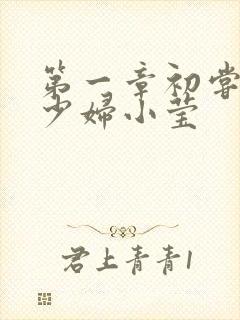 第一章初尝
少婦小莹
君上青青1